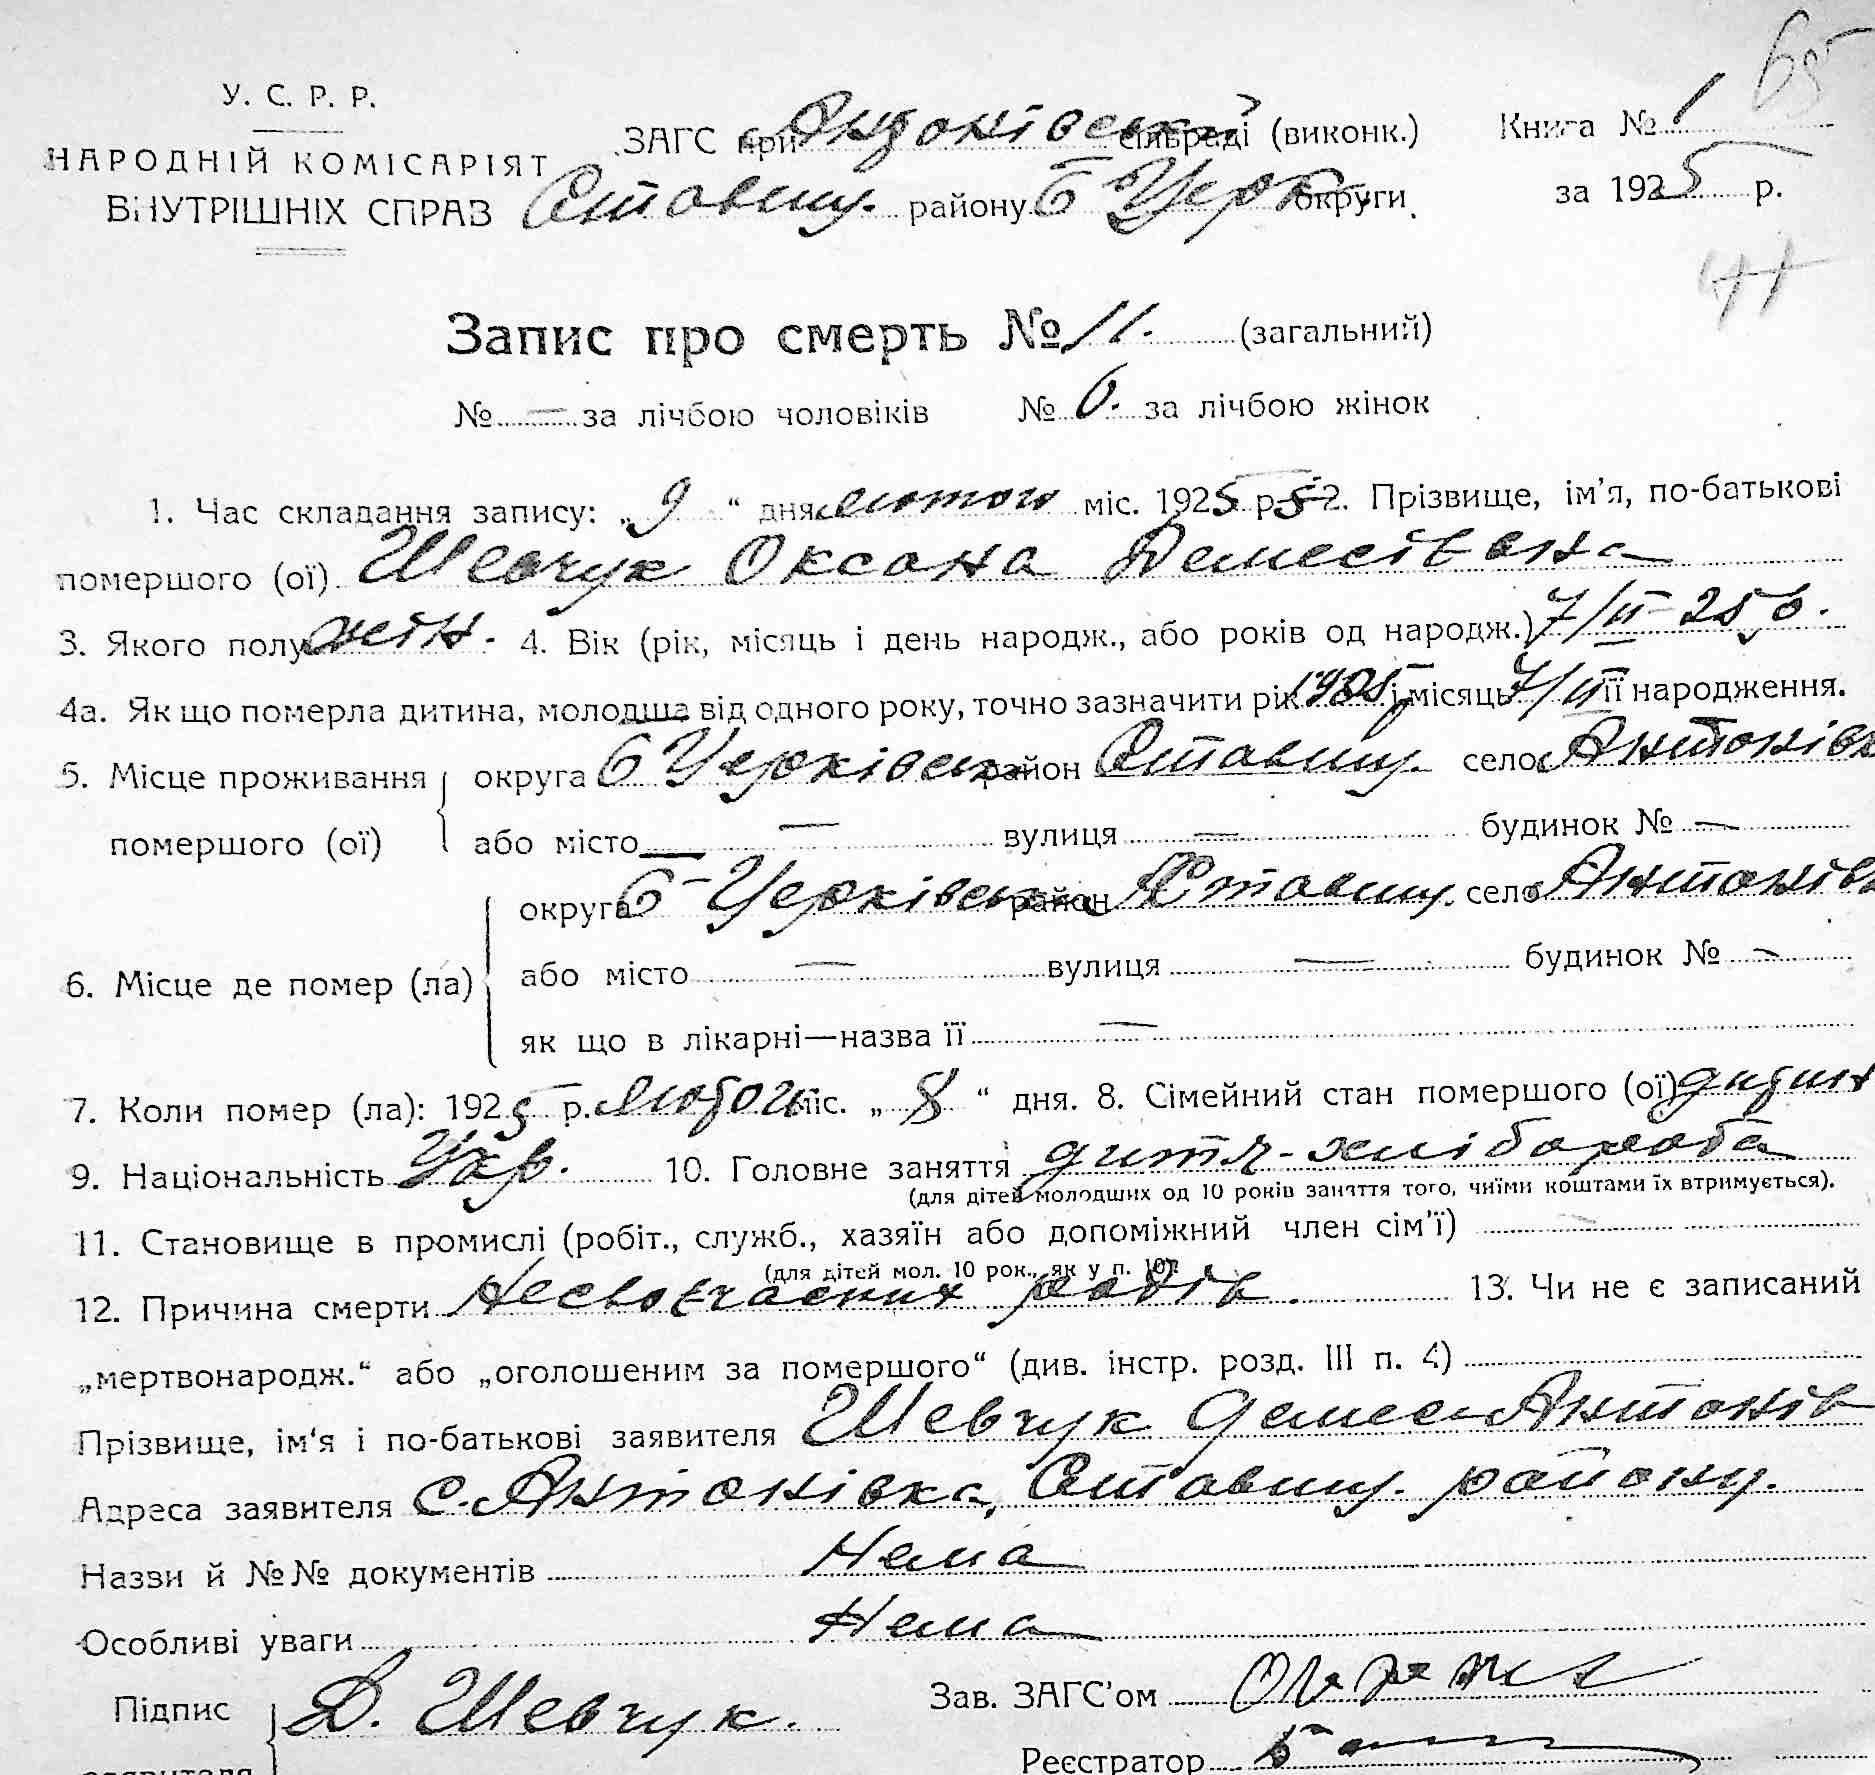 65
У. С. Р. Р.
НАРОДНІЙ КОМІСАРІЯТ
ВНУТРІШНІХ СПРАВ
ЗАГС при Антонівській сільраді (виконк.) Книга № 1
Ставищ. району Б Церк округи за 1925 р.
Запис про смерть № 11. (загальний)
№ — за лічбою чоловіків № 6. за лічбою жінок
1. Час складання запису: „ 9 “ дня лютого міс. 1925 р. 2. Прізвище, ім'я, по-батькові
помершого (ої) Шевчук Оксана Демесівна
3. Якого полу жін. 4. Вік (рік, місяць і день народж., або років од народж.) 7/II-25 р.
4а. Як що померла дитина, молодша від одного року, точно зазначити рік 1925 і місяць 7/II її народження.
5. Місце проживання помершого (ої) округа Б Церківськ район Ставищ. село Антонівк
або місто — вулиця — будинок № —
6. Місце де помер (ла) округа Б-Церківськ район Ставищ. село Антонівк
або місто — вулиця — будинок № —
як що в лікарні—назва її —
7. Коли помер (ла): 1925 р. лютого міс. „ 8 “ дня. 8. Сімейний стан помершого (ої) дитина
9. Національність Укр. 10. Головне заняття дитя-хлібороба
(для дітей молодших од 10 років заняття того, чиїми коштами їх втримується).
11. Становище в промислі (робіт., служб., хазяїн або допоміжний член сім'ї) —
(для дітей мол. 10 рок., як у п. 10)
12. Причина смерти Несвоєчасних родів. 13. Чи не є записаний
„мертвонародж.“ або „оголошеним за помершого“ (див. інстр. розд. III п. 4)
Прізвище, ім'я і по-батькові заявителя Шевчук Демес Антонів
Адреса заявителя с. Антонівка, Ставищ. району.
Назви й №№ документів Нема
Особливі уваги Нема
Підпис Д. Шевчук. Зав. ЗАГС'ом
заявителя Реєстратор